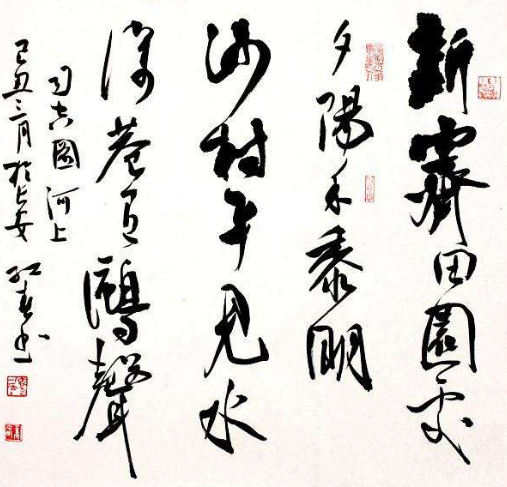 新霽田園處
夕陽禾黍明
沙村平見水
深巷有鷗聲
司空圖 河上
己丑三月於長安